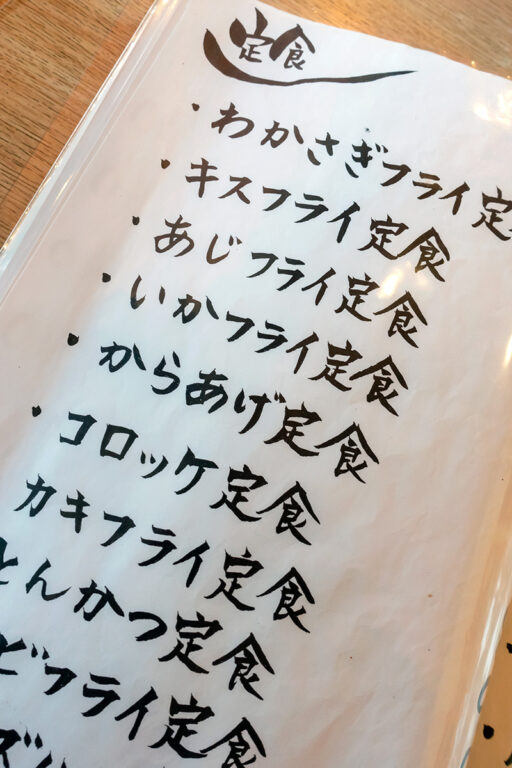 定食
・わかさぎフライ定
・キスフライ定食
・あじフライ定食
・いかフライ定食
・からあげ定食
・コロッケ定食
カキフライ定食
とんかつ定食
ビフライ定食